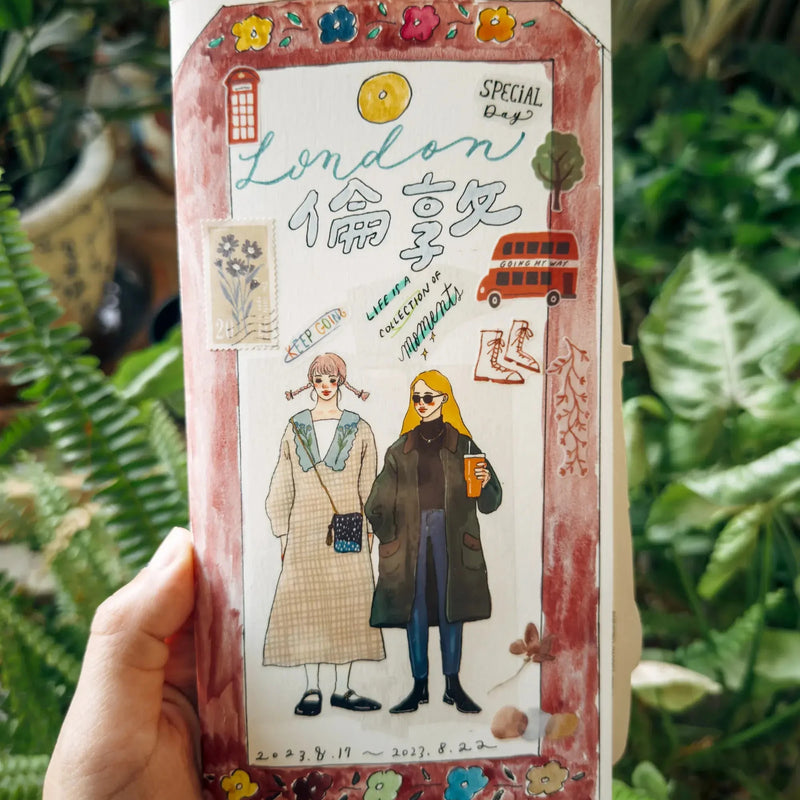 SPECIAL
Day
London
倫敦
GOING MY WAY
KEEP GOING
LIFE IS A
COLLECTION OF
moments
2023.8.17 ~ 2023.8.22